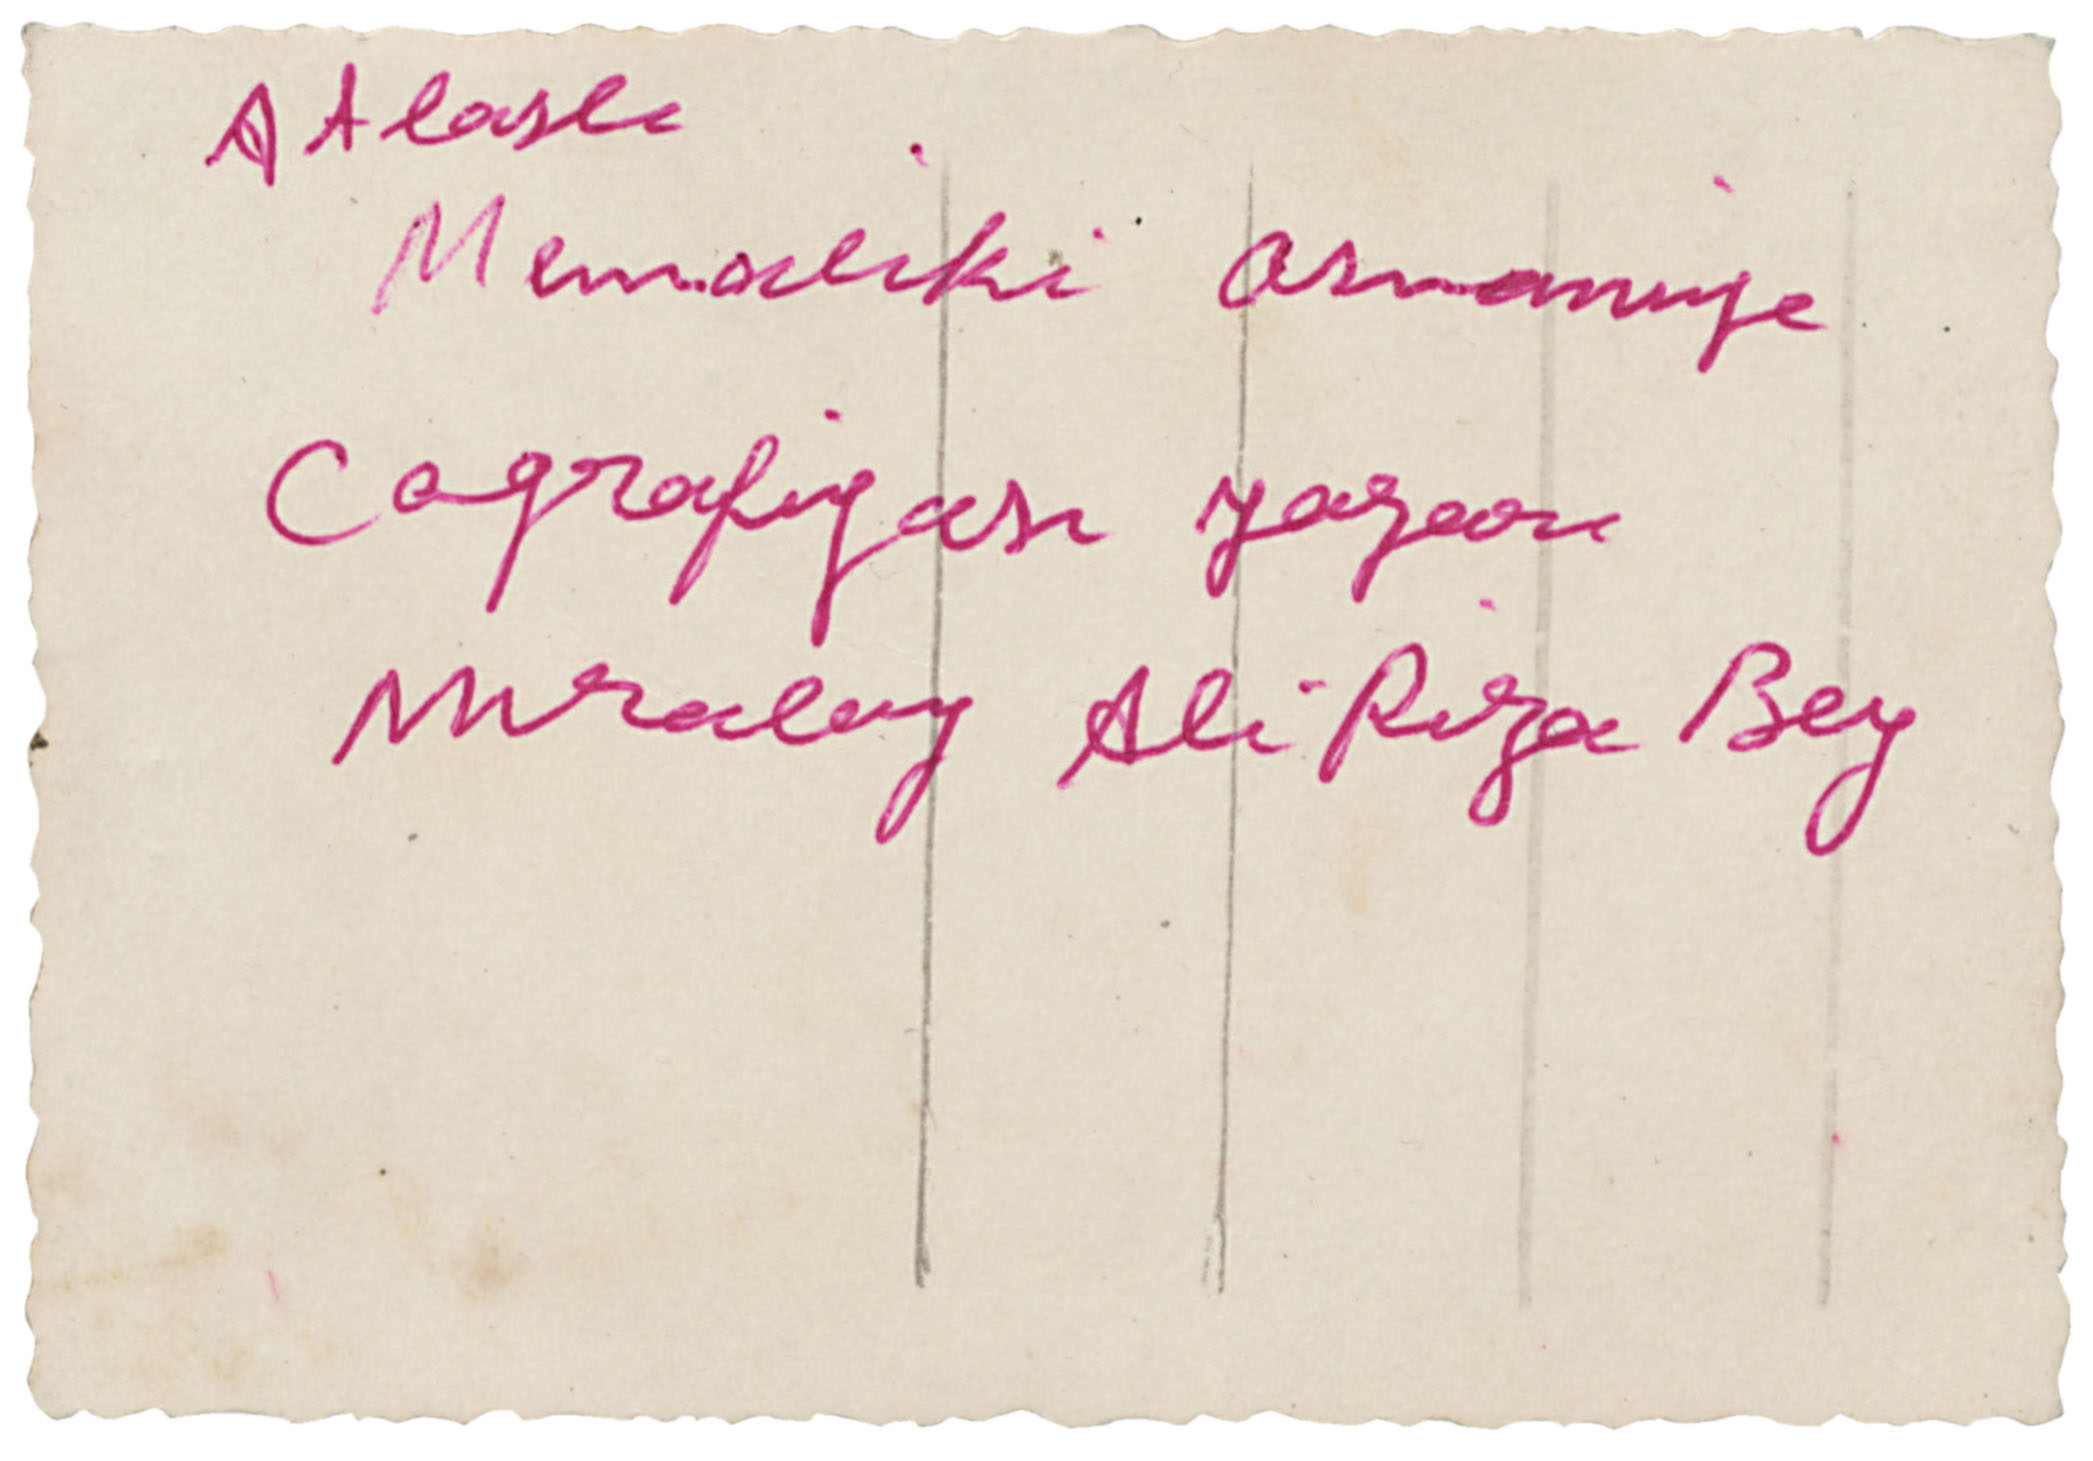 Atlaslı
Memaliki Osmaniye
Cografiyası yazarı
Miralay Ali Rıza Bey